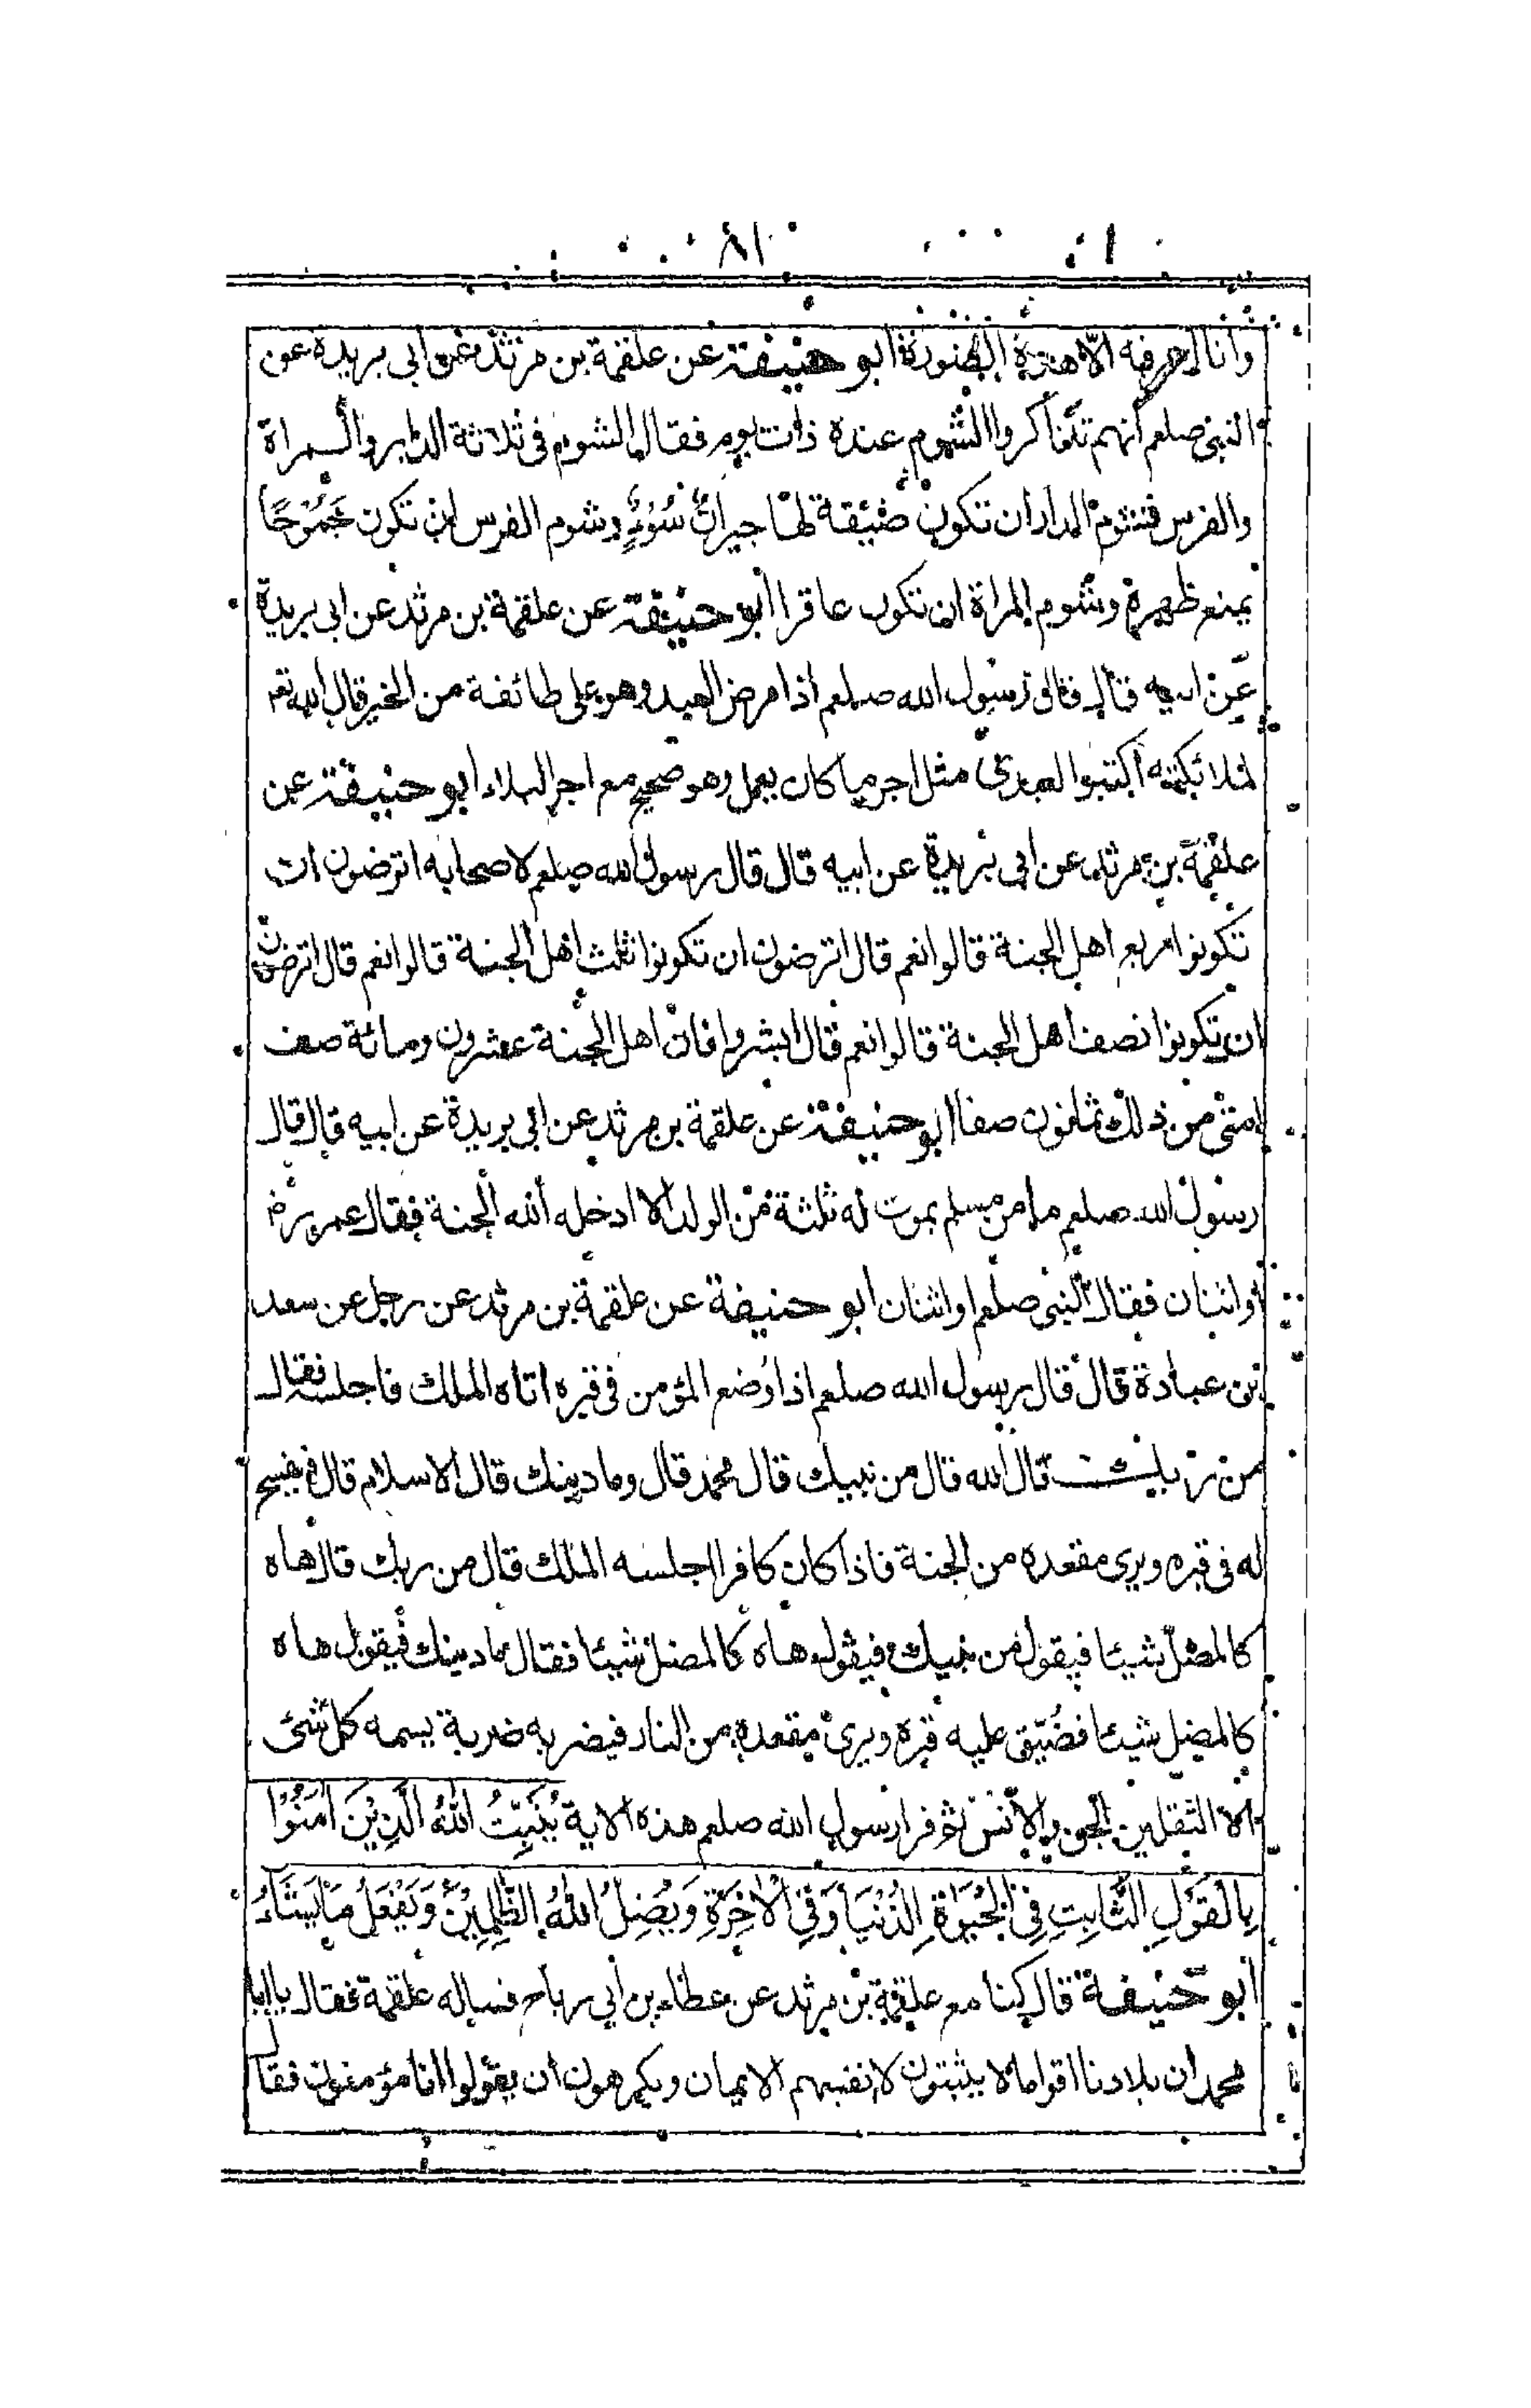 ٨١
وانا لم اعرفه الا هذه الصورة ابو حنيفة عن علقمة بن مرثد عن ابي بريدة عن
النبي صلعم انهم تذاكروا الشوم عنده ذات يوم فقال الشوم في ثلاثة الدار والمراة
والفرس فشوم الدار ان تكون ضيقة لها جيران سُوْءٍ وشوم الفرس ان تكون جَمُوْحًا
يمنع ظهره وشوم المراة ان تكون عاقرا ابو حنيفة عن علقمة بن مرثد عن ابي بريدة
عن ابيه قال قال رسول الله صلعم اذا مرض العبد وهو على طائفة من الخير قال الله تعم
لملائكته اكتبوا لعبدي مثل اجر ما كان يعمل وهو صحيح مع اجر البلاء ابو حنيفة عن
علقمة بن مرثد عن ابي بريدة عن ابيه قال قال رسول الله صلعم لاصحابه اترضون ان
تكونوا ربع اهل الجنة قالوا نعم قال اترضون ان تكونوا ثلث اهل الجنة قالوا نعم قال اترضون
ان تكونوا نصف اهل الجنة قالوا نعم قال ابشروا فان اهل الجنة عشرون ومائة صف
امتي من ذلك ثمانون صفا ابو حنيفة عن علقمة بن مرثد عن ابي بريدة عن ابيه قال قال
رسول الله صلعم ما من مسلم يموت له ثلثة من الولد الا ادخله الله الجنة فقال عمر رض
او اثنان فقال النبي صلعم او اثنان ابو حنيفة عن علقمة بن مرثد عن رجل عن سعد
بن عبادة قال قال رسول الله صلعم اذا وُضع المؤمن في قبره اتاه الملك فاجلسه فقال
من ربك قال الله قال من نبيك قال محمد قال وما دينك قال الاسلام قال فيفسح
له في قبره ويرى مقعده من الجنة فاذا كان كافرا اجلسه الملك قال من ربك قال هاه
كالمضل شيئا فيقول من نبيك فيقول هاه كالمضل شيئا فقال ما دينك فيقول هاه
كالمضل شيئا فضُيّق عليه قبره ويرى مقعده من النار فيضربه ضربة يسمعه كل شئ
الا الثقلين الجن والانس ثم قرا رسول الله صلعم هذه الاية يُثَبِّتُ اللهُ الَّذِيْنَ اٰمَنُوْا
بِالْقَوْلِ الثَّابِتِ فِي الْحَيٰوةِ الدُّنْيَا وَفِي الْاٰخِرَةِ وَيُضِلُّ اللهُ الظّٰلِمِيْنَ وَيَفْعَلُ مَا يَشَآءُ
ابو حنيفة قال كنا مع علقمة بن مرثد عن عطاء بن ابي رباح فساله علقمة فقال يا ابا
محمد ان ببلادنا اقواما لا يثبتون لانفسهم الايمان ويكرهون ان يقولوا انا مؤمنون فقال